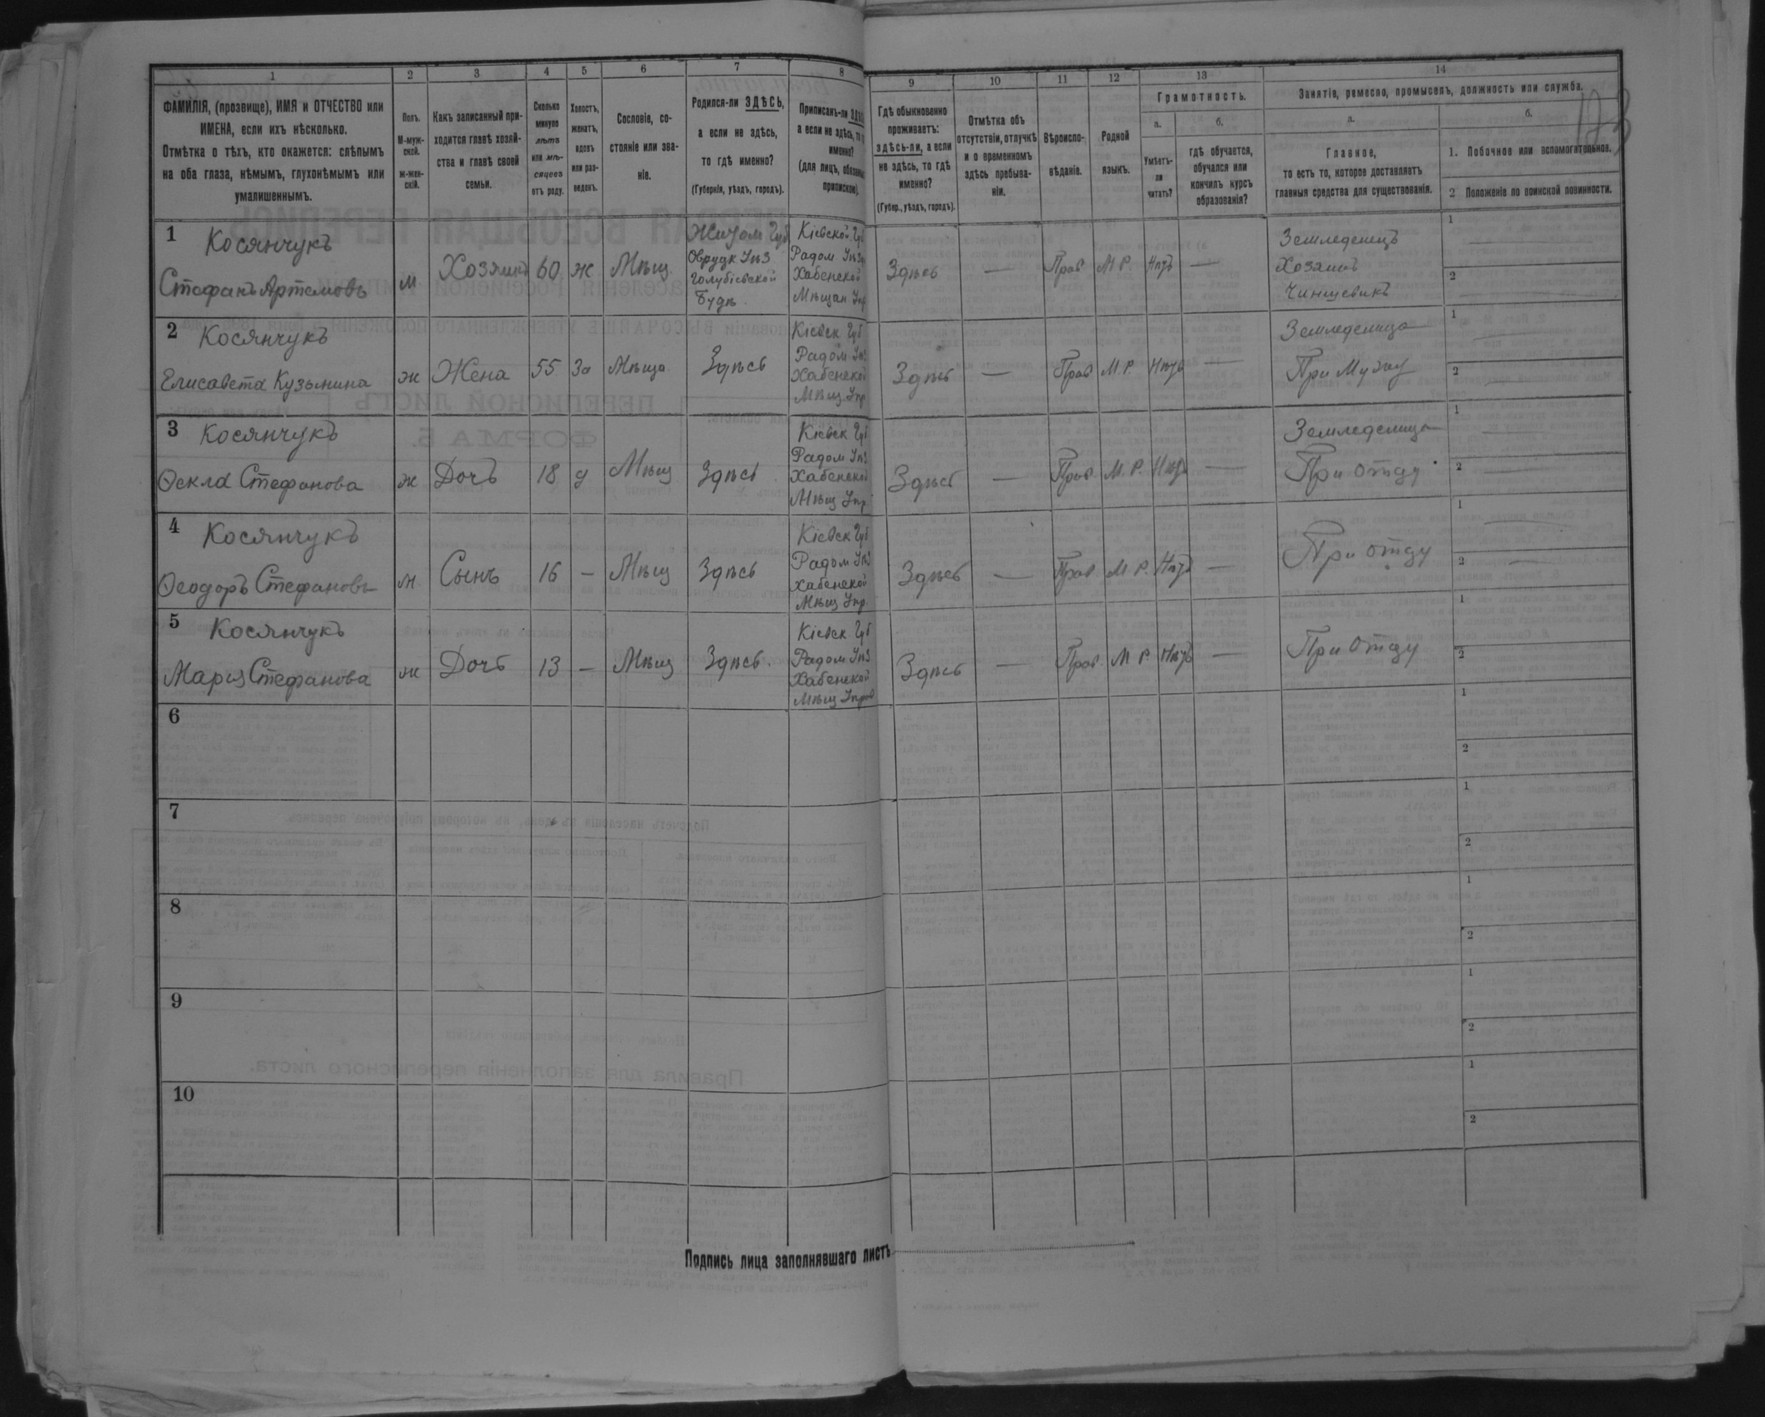 1 2 3 4 5 6 7 8 9 10 11 12 13 14
ФАМИЛІЯ, (прозвище), ИМЯ и ОТЧЕСТВО или
ИМЕНА, если ихъ нѣсколько.
Отмѣтка о тѣхъ, кто окажется: слѣпымъ
на оба глаза, нѣмымъ, глухонѣмымъ или
умалишеннымъ.
Полъ.
М-муж-
ской.
ж-жен-
скій.
Какъ записанный при-
ходится главѣ хозяй-
ства и главѣ своей
семьи.
Сколько
минуло
лѣтъ
или мѣ-
сяцевъ
отъ роду.
Холостъ,
женатъ,
вдовъ
или раз-
веденъ.
Сословіе, со-
стояніе или зва-
ніе.
Родился-ли ЗДѢСЬ,
а если не здѣсь,
то гдѣ именно?
(Губернія, уѣздъ, городъ).
Приписанъ-ли
а если не здѣсь, то
именно?
(для лицъ,
припискою).
Гдѣ обыкновенно
проживаетъ:
здѣсь-ли, а если
не здѣсь, то гдѣ
именно?
(Губер., уѣздъ, городъ).
Отмѣтка объ
отсутствіи, отлучкѣ
и о временномъ
здѣсь пребыва-
ніи.
Вѣроиспо-
вѣданіе.
Родной
языкъ.
Грамотность.
а.
Умѣетъ-
ли
читать?
б.
гдѣ обучается,
обучался или
кончилъ курсъ
образованія?
Занятіе, ремесло, промыселъ, должность или служба.
а.
Главное,
то есть то, которое доставляетъ
главныя средства для существованія.
б.
1. Побочное или вспомогательное.
2 Положеніе по воинской повинности.
1 Косянчукъ
Стефанъ Артемовъ
м Хозяинъ 60 ж Мѣщ
Житом Губ
Овруцк Уѣз
Голубіевской
Будѣ
Кіевской Губ
Радом Уѣз
Хабенской
Мѣщан Упр
Здѣсь — Прав М.Р. Нѣтъ —
Земледелецъ
Хозяинъ
Чиншевикъ
1
2
2 Косянчукъ
Елисавета Кузьмина
ж Жена 55 За Мѣща Здѣсь
Кіевск Губ
Радом Уѣз
Хабенской
Мѣщ. Упр
Здѣсь — Прав М.Р. Нѣтъ —
Земледелица
При Мужу
1
2
3 Косянчукъ
Ѳекла Стефанова
ж Дочь 18 д Мѣщ Здѣсь
Кіевск Губ
Радом Уѣз
Хабенской
Мѣщ Упр
Здѣсь — Прав М.Р. Нѣтъ —
Земледелица
При Отцу
1
2
4 Косянчукъ
Ѳеодоръ Стефановъ
м Сынъ 16 — Мѣщ Здѣсь
Кіевск Губ
Радом Уѣз
Хабенской
Мѣщ Упр
Здѣсь — Прав М.Р. Нѣтъ —
При Отцу
1
2
5 Косянчукъ
Марія Стефанова
ж Дочь 13 — Мѣщ Здѣсь
Кіевск Губ
Радом Уѣз
Хабенской
Мѣщ Управ
Здѣсь — Прав. М.Р. Нѣтъ —
При Отцу
1
2
6
1
2
7
1
2
8
1
2
9
1
2
10
1
2
Подпись лица заполнявшаго листъ